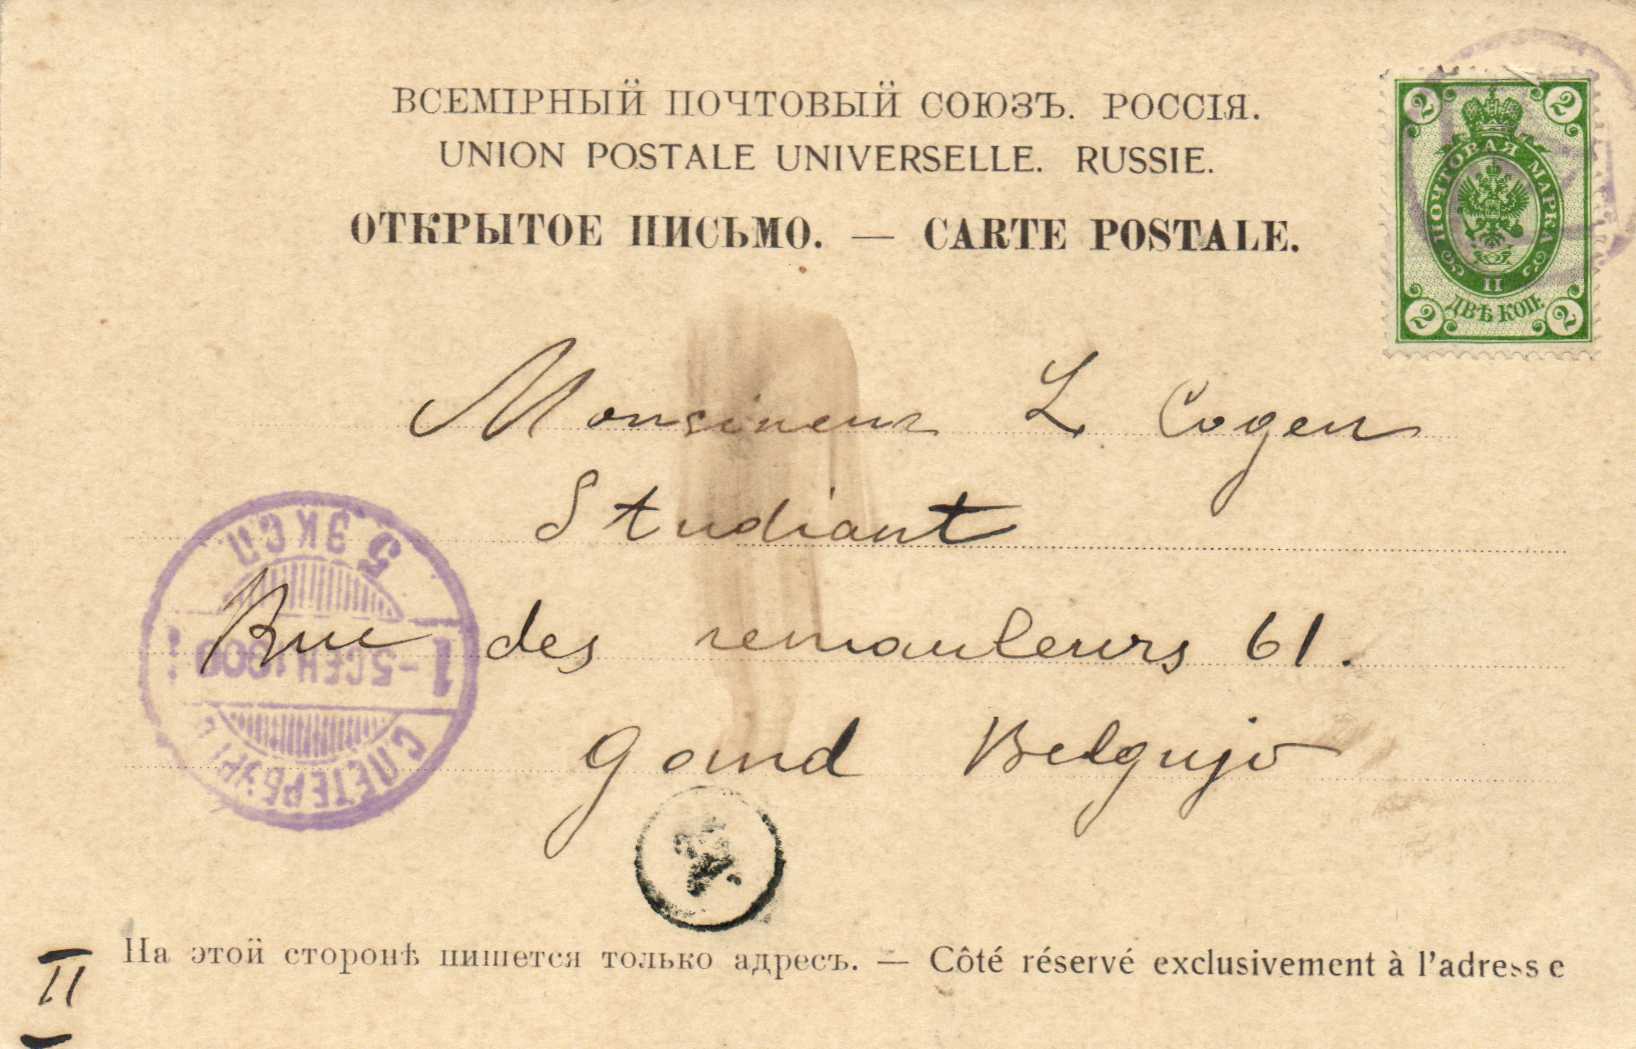 ВСЕМІРНЫЙ ПОЧТОВЫЙ СОЮЗЪ. РОССІЯ.
UNION POSTALE UNIVERSELLE. RUSSIE.
ОТКРЫТОЕ ПИСЬМО. — CARTE POSTALE.
2 2
ПОЧТОВАЯ МАРКА
II
ДВѢ КОП.
2 2
Monsineur L Cogen
Studiant
5 ЭКСП
Rue des remouleurs 61.
1 -5 СЕН. 1900
С.ПЕТЕРБУРГЪ
Gand Belgujo
На этой сторонѣ пишется только адресъ. — Côté réservé exclusivement à l'adresse
II